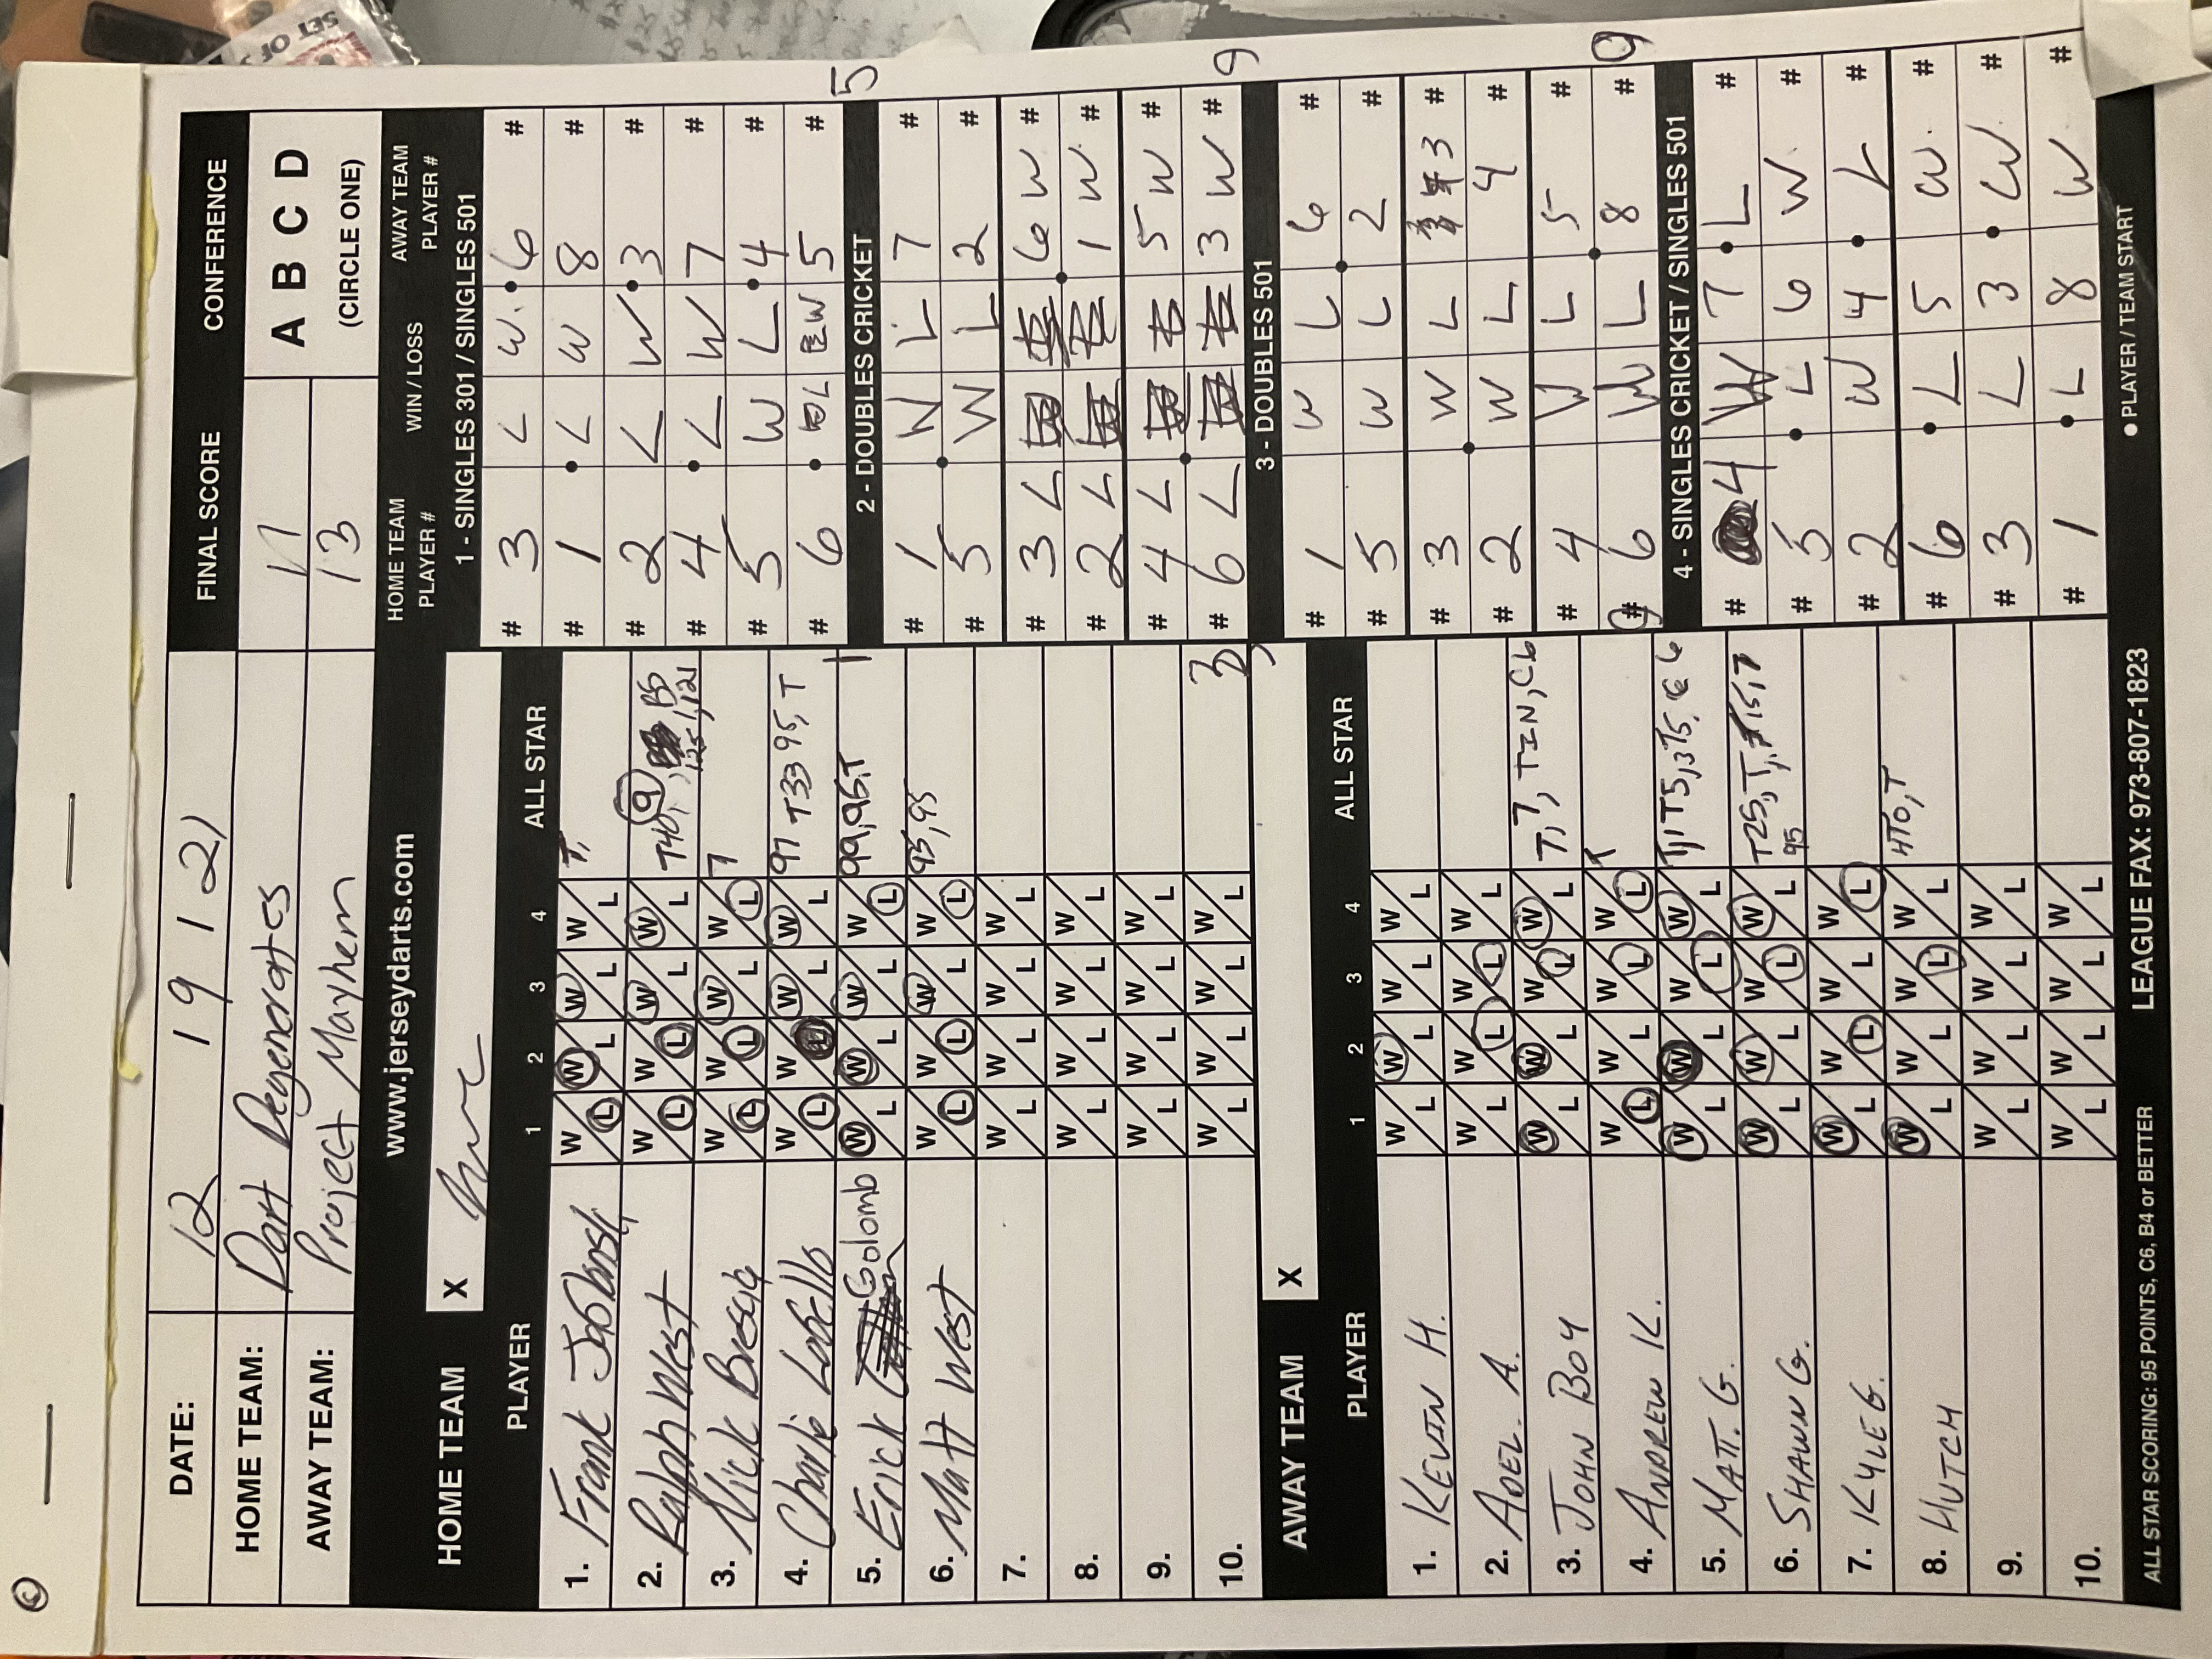 DATE: 12 19 121
FINAL SCORE
CONFERENCE
HOME TEAM: Dart Degenerates 11
A B C D
AWAY TEAM: Project Mayhem 13
(CIRCLE ONE)
www.jerseydarts.com
HOME TEAM
X
PLAYER 1 2 3 4 ALL STAR
1. Frank W/L W/L W/L W/L T,
2. Ralph West W/L W/L W/L W/L T40, 9 125, 121
3. Nick Brescia W/L W/L W/L W/L T
4. Charlie Lobello W/L W/L W/L W/L 97 T33 95, T
5. Erick Golomb W/L W/L W/L W/L 99, 95, T 1
6. Matt West W/L W/L W/L W/L 95, 95
7. W/L W/L W/L W/L
8. W/L W/L W/L W/L
9. W/L W/L W/L W/L
10. W/L W/L W/L W/L 3
AWAY TEAM
X
PLAYER 1 2 3 4 ALL STAR
1. KEVIN H. W/L W/L W/L W/L
2. ADEL. A. W/L W/L W/L W/L
3. JOHN BOY W/L W/L W/L W/L T, T, TIN, C6
4. ANDREW K. W/L W/L W/L W/L T
5. MATT. G. W/L W/L W/L W/L
6. SHAWN G. W/L W/L W/L W/L T25, T, 95
7. KYLE G. W/L W/L W/L W/L
8. HUTCH W/L W/L W/L W/L HTO, T
9. W/L W/L W/L W/L
10. W/L W/L W/L W/L
HOME TEAM PLAYER #
WIN / LOSS
AWAY TEAM PLAYER #
1 - SINGLES 301 / SINGLES 501
# 3 L W 6 #
# 1 L W 8 #
# 2 L W 3 #
# 4 L W 7 #
# 5 W L 4 #
# 6 L W 5 #
5
2 - DOUBLES CRICKET
# 1 W L 7 #
# 5 W L 2 #
# 3 L 6 W #
# 2 L 1 W #
# 4 L 5 W #
# 6 L 3 W #
9
3 - DOUBLES 501
# 1 W L 6 #
# 5 W L 2 #
# 3 W L 3 #
# 2 W L 4 #
# 4 W L 5 #
# 6 W L 8 #
9
9
4 - SINGLES CRICKET / SINGLES 501
# 4 W 7 L #
# 5 L 6 W #
# 2 W 4 L #
# 6 L 5 W #
# 3 L 3 W #
# 1 L 8 W #
ALL STAR SCORING: 95 POINTS, C6, B4 or BETTER
LEAGUE FAX: 973-807-1823
● PLAYER / TEAM START